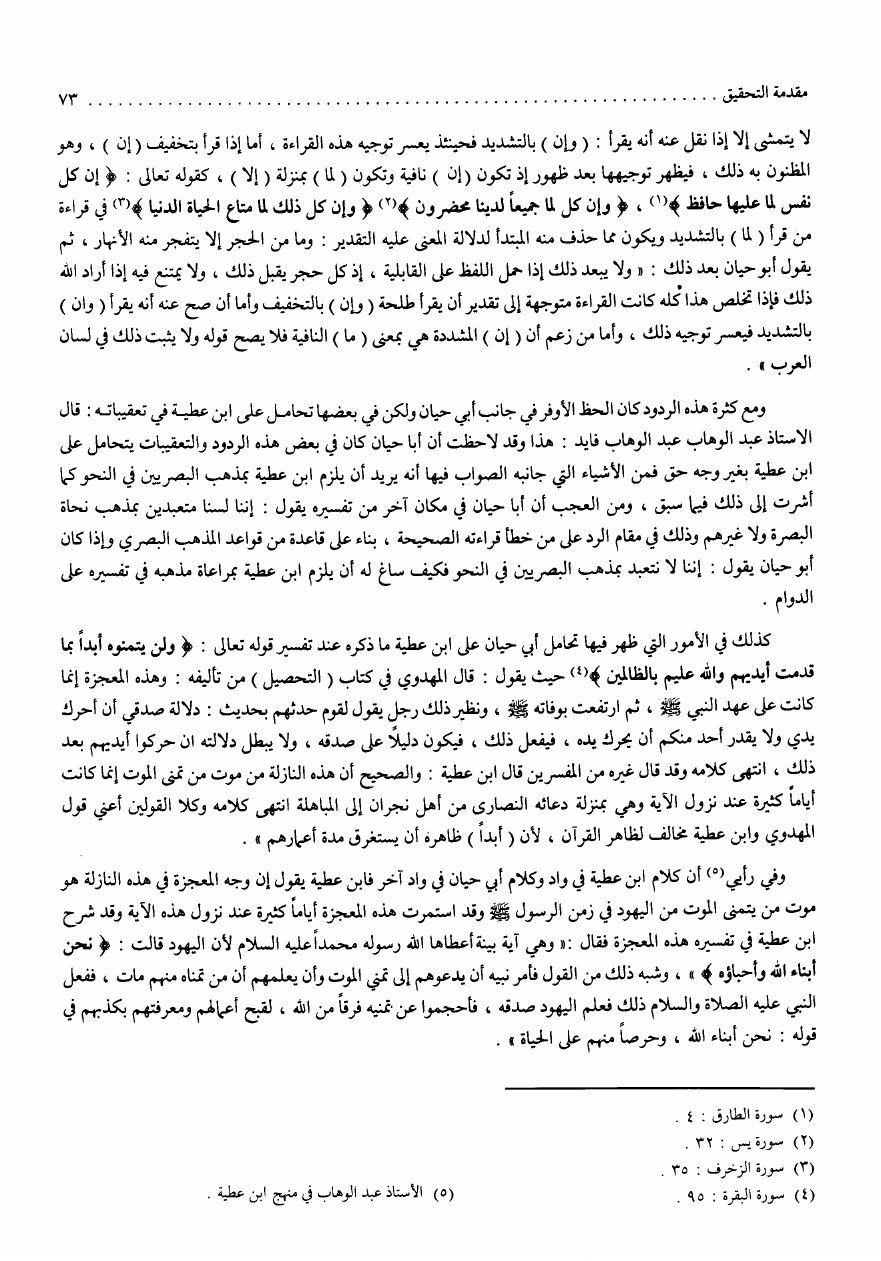 مقدمة التحقيق ........................................................... ٧٣
لا يتمشى إلا إذا نقل عنه أنه يقرأ : ( وإن ) بالتشديد فحينئذ يعسر توجيه هذه القراءة ، أما إذا قرأ بتخفيف ( إن ) ، وهو
المظنون به ذلك ، فيظهر توجيهها بعد ظهور إذ تكون ( إن ) نافية وتكون ( لما ) بمنزلة ( إلا ) ، كقوله تعالى : ﴿ إن كل
نفس لما عليها حافظ ﴾(١) ، ﴿ وإن كل لما جميعاً لدينا محضرون ﴾(٢) ﴿ وإن كل ذلك لما متاع الحياة الدنيا ﴾(٣) في قراءة
من قرأ ( لما ) بالتشديد ويكون مما حذف منه المبتدأ لدلالة المعنى عليه التقدير : وما من الحجر إلا يتفجر منه الأنهار ، ثم
يقول أبو حيان بعد ذلك : « ولا يبعد ذلك إذا حمل اللفظ على القابلية ، إذ كل حجر يقبل ذلك ، ولا يمتنع فيه إذا أراد الله
ذلك فإذا تخلص هذا كُله كانت القراءة متوجهة إلى تقدير أن يقرأ طلحة ( وإن ) بالتخفيف وأما أن صح عنه أنه يقرأ ( وان )
بالتشديد فيعسر توجيه ذلك ، وأما من زعم أن ( إن ) المشددة هي بمعنى ( ما ) النافية فلا يصح قوله ولا يثبت ذلك في لسان
العرب » .
ومع كثرة هذه الردود كان الحظ الأوفر في جانب أبي حيان ولكن في بعضها تحامل على ابن عطية في تعقيباته : قال
الاستاذ عبد الوهاب عبد الوهاب فايد : هذا وقد لاحظت أن أبا حيان كان في بعض هذه الردود والتعقيبات يتحامل على
ابن عطية بغير وجه حق فمن الأشياء التي جانبه الصواب فيها أنه يريد أن يلزم ابن عطية بمذهب البصريين في النحو كما
أشرت إلى ذلك فيما سبق ، ومن العجب أن أبا حيان في مكان آخر من تفسيره يقول : إننا لسنا متعبدين بمذهب نحاة
البصرة ولا غيرهم وذلك في مقام الرد على من خطأ قراءته الصحيحة ، بناء على قاعدة من قواعد المذهب البصري وإذا كان
أبو حيان يقول : إننا لا نتعبد بمذهب البصريين في النحو فكيف ساغ له أن يلزم ابن عطية بمراعاة مذهبه في تفسيره على
الدوام .
كذلك في الأمور التي ظهر فيها تحامل أبي حيان على ابن عطية ما ذكره عند تفسير قوله تعالى : ﴿ ولن يتمنوه أبداً بما
قدمت أيديهم والله عليم بالظالمين ﴾(٤) حيث يقول : قال المهدوي في كتاب ( التحصيل ) من تأليفه : وهذه المعجزة إنما
كانت على عهد النبي ﷺ ، ثم ارتفعت بوفاته ﷺ ، ونظير ذلك رجل يقول لقوم حدثهم بحديث : دلالة صدقي أن أحرك
يدي ولا يقدر أحد منكم أن يحرك يده ، فيفعل ذلك ، فيكون دليلاً على صدقه ، ولا يبطل دلالته ان حركوا أيديهم بعد
ذلك ، انتهى كلامه وقد قال غيره من المفسرين قال ابن عطية : والصحيح أن هذه النازلة من موت من تمنى الموت إنما كانت
أياماً كثيرة عند نزول الآية وهي بمنزلة دعائه النصارى من أهل نجران إلى المباهلة انتهى كلامه وكلا القولين أعني قول
المهدوي وابن عطية مخالف لظاهر القرآن ، لأن ( أبداً ) ظاهره أن يستغرق مدة أعمارهم » .
وفي رأيي(٥) أن كلام ابن عطية في واد وكلام أبي حيان في واد آخر فابن عطية يقول إن وجه المعجزة في هذه النازلة هو
موت من يتمنى الموت من اليهود في زمن الرسول ﷺ وقد استمرت هذه المعجزة أياماً كثيرة عند نزول هذه الآية وقد شرح
ابن عطية في تفسيره هذه المعجزة فقال :« وهي آية بينة أعطاها الله رسوله محمداً عليه السلام لأن اليهود قالت : ﴿ نحن
أبناء الله وأحباؤه ﴾ » ، وشبه ذلك من القول فأمر نبيه أن يدعوهم إلى تمني الموت وأن يعلمهم أن من تمناه منهم مات ، ففعل
النبي عليه الصلاة والسلام ذلك فعلم اليهود صدقه ، فأحجموا عن تمنيه فرقاً من الله ، لقبح أعمالهم ومعرفتهم بكذبهم في
قوله : نحن أبناء الله ، وحرصاً منهم على الحياة » .
(١) سورة الطارق : ٤ .
(٢) سورة يس : ٣٢ .
(٣) سورة الزخرف : ٣٥ .
(٤) سورة البقرة : ٩٥ .
(٥) الأستاذ عبد الوهاب في منهج ابن عطية .